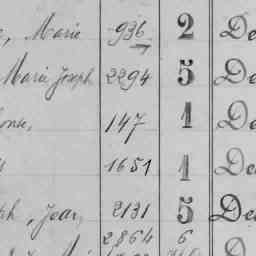 Marie 936 2 De
Marie Joseph 2294 5 De
147 1 De
1651 1 De
Jean 2131 5 De
2864 6